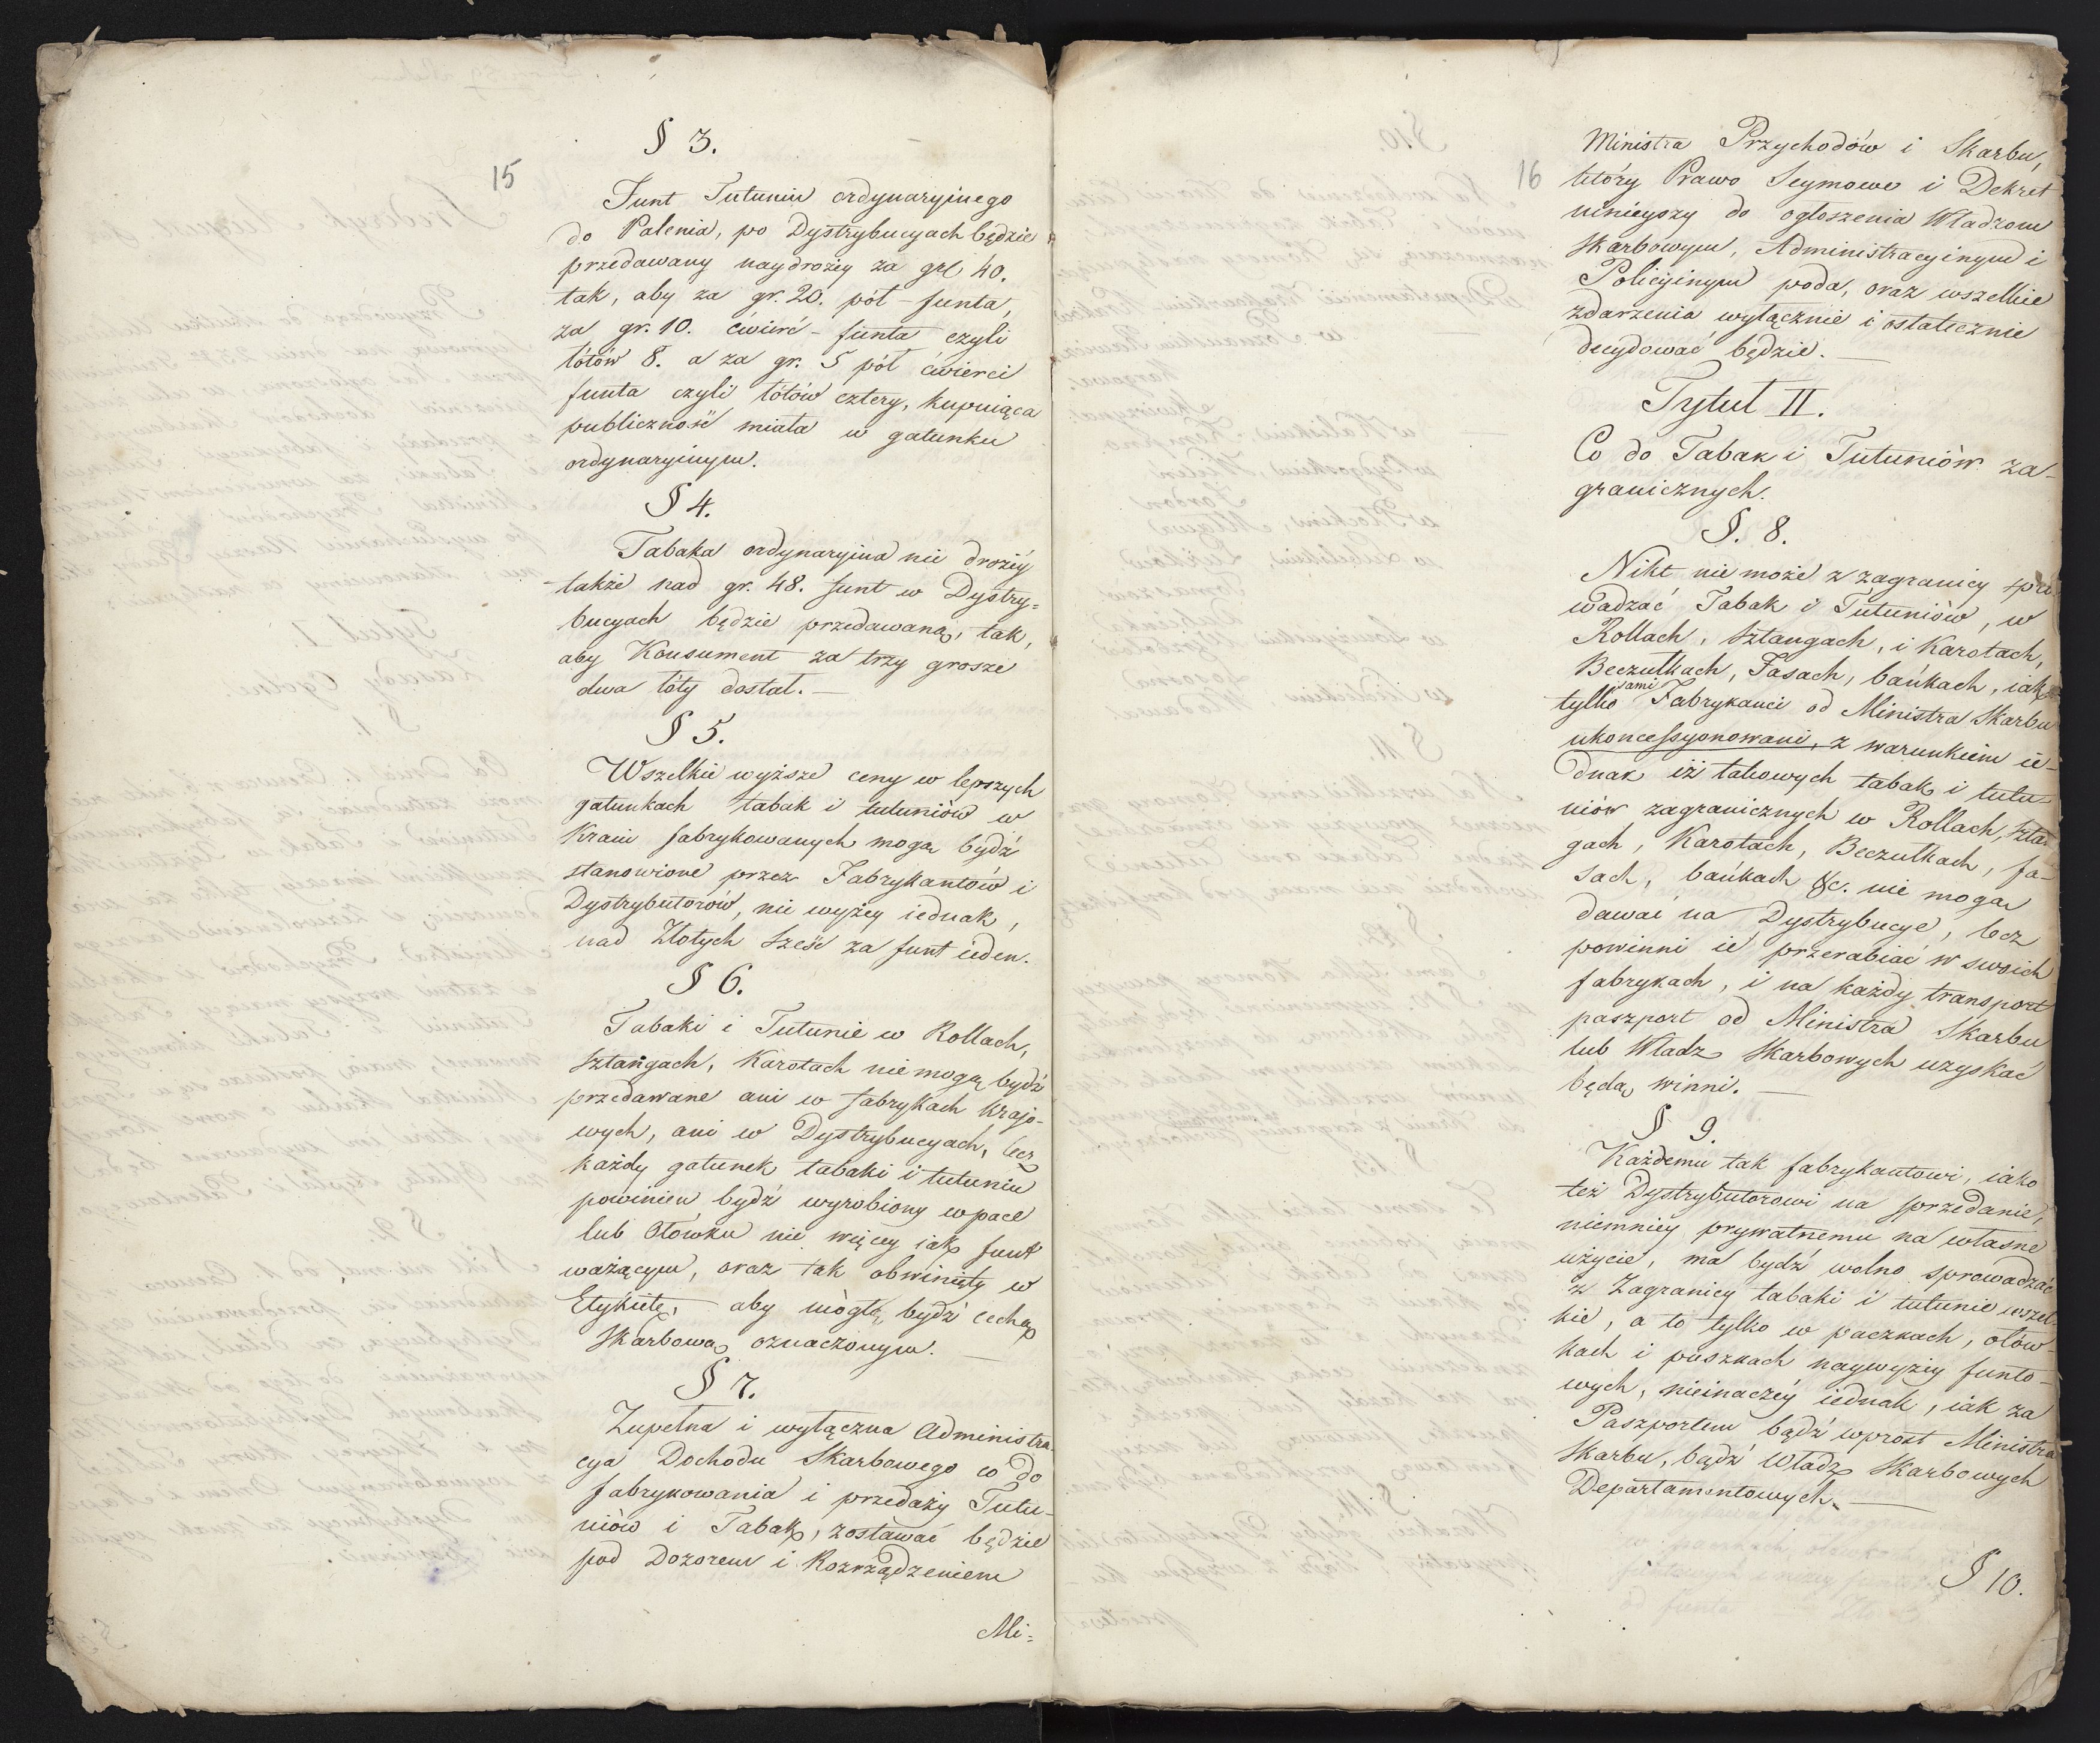 15
§ 3.
Funt Tutuniu ordynaryinego
do Palenia, po Dystrybucyach będzie
przedawany naydrożey za gr 40.
tak, aby za gr. 20. pół-funta,
za gr. 10. ćwierć-funta czyli
łótów 8. a za gr. 5 pół ćwierci
funta czyli łótów cztery, kupuiąca
publiczność miała w gatunku
ordynaryinym.
§ 4.
Tabaka ordynaryina nie drożéy
także nad gr. 48. funt w Dystry=
bucyach będzie przedawaną, tak,
aby Konsument za trzy grosze
dwa łóty dostał. —
§ 5.
Wszelkie wyższe ceny w lepszych
gatunkach tabak i tutuniów w
Kraiu fabrykowanych mogą bydź
stanowione przez Fabrykantów i
Dystrybutorów, nie wyżey iednak,
nad Złotych sześć za funt ieden.
§ 6.
Tabaki i Tutunie w Rollach,
Sztangach, Karotach nie mogą bydź
przedawane ani w fabrykach krajo-
wych, ani w Dystrybucyach, lecz
każdy gatunek tabaki i tutuniu
powinien bydź wyrobiony w pace
lub Ołówku nie więcey iak funt
ważącym, oraz tak obwinięty w
Etykietę, aby mógł bydź cechą
Skarbową oznaczonym. —
§ 7.
Zupełna i wyłączna Administra-
cya Dochodu Skarbowego co do
fabrykowania i przedaży Tutu-
niów i Tabak, zostawać będzie
pod Dozorem i Rozrządzeniem
Mi=
16
Ministra Przychodów i Skarbu,
który Prawo Seymowe i Dekret
ninieyszy do ogłoszenia Władzom
Skarbowym, Administracyinym i
Policyinym poda, oraz wszelkie
zdarzenia wyłącznie i ostatecznie
decydować będzie. —
Tytuł II.
Co do Tabak i Tutuniów za-
granicznych.
§. 8.
Nikt nie może z zagranicy spro
wadzać Tabak i Tutuniów, w
Rollach, Sztangach, i Karotach,
Beczułkach, Fasach, bańkach, iak
tylko sami Fabrykanci od Ministra Skarbu
ukoncessyonowani, z warunkiem ie-
dnak iż takowych tabak i tutu-
niów zagranicznych w Rollach, Sztan
gach, Karotach, Beczułkach, fa-
sach, bańkach &c. nie mogą
dawać na Dystrybucye, lecz
powinni ie przerabiać w swoich
fabrykach, i na każdy transport
paszport od Ministra Skarbu
lub Władz Skarbowych uzyskać
będą winni. —
§ 9.
Każdemu tak fabrykantowi, iako
też Dystrybutorowi na sprzedanie,
niemniey prywatnemu na własne
użycie, ma bydź wolno sprowadzać
z Zagranicy tabaki i tutunie wszel-
kie, a to tylko w paczkach, ołów-
kach i puszkach naywyżey funto-
wych, nieinaczéy iednak, iak za
Paszportem bądź wprost Ministra
Skarbu, bądź Władz Skarbowych
Departamentowych. —
§ 10.